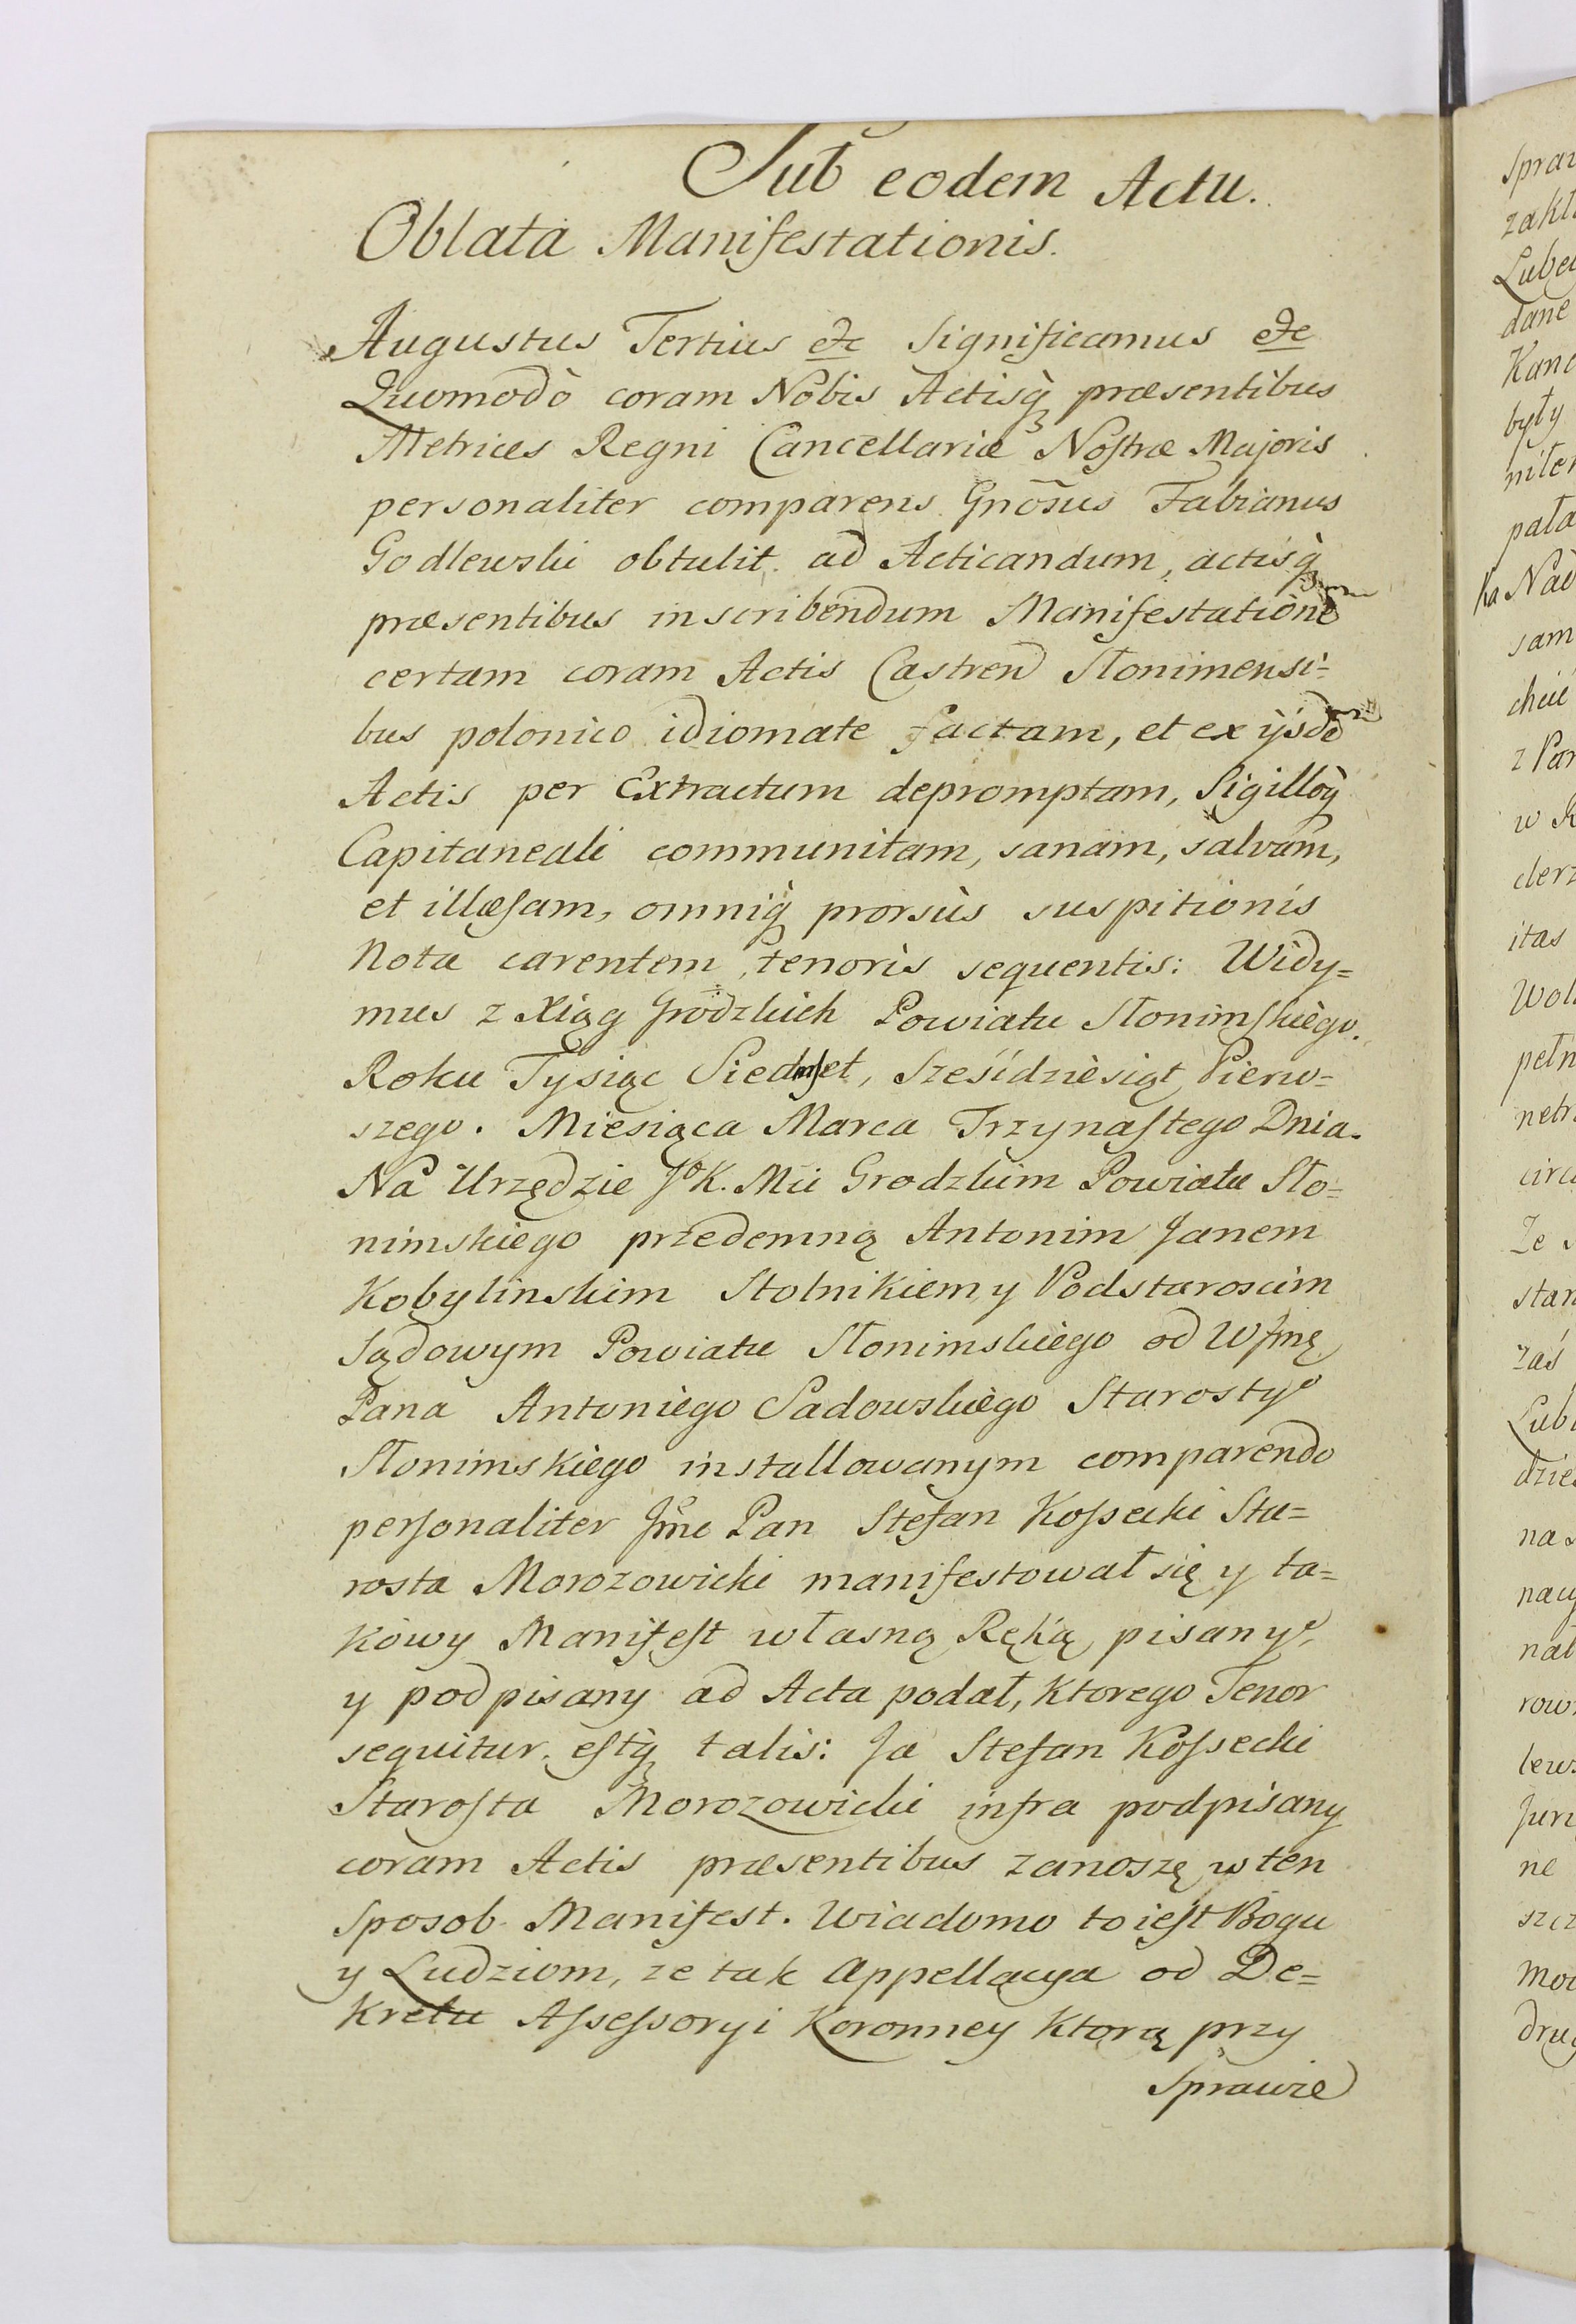 Sub eodem Actu.
Oblata Manifestationis.
Augustus Tertius etc Significamus etc
Quomodò coram Nobis Actisq̀ præsentibus
Metrices Regni Cancellariæ Nostræ Majoris
personaliter comparens Gnosus Fabianus
Godlewski obtulit ad Acticandum, actisq̀
præsentibus inscribendum Manifestationem
certam coram Actis Castren Słonimensi=
bus polonico idiomate factam, et ex ijsdem
Actis per Extractum depromptam, Sigilloq̀
Capitaneali communitam, sanam, salvam,
et illæsam, omniq̀ prorsùs suspitionis
Nota carentem, tenoris sequentis: Widy=
mus z Xiąg Grodzkich Powiatu Słonimskiego.
Roku Tysiąc Siedmset, Sześćdziesiąt Pierw=
szego. Miesiąca Marca Trzynastego Dnia.
Na Urzędzie Jo K. Mci Grodzkim Powiatu Sło=
nimskiego przedemną Antonim Janem
Kobylinskim Stolnikiem y Podstaroscim
Sądowym Powiatu Słonimskiego od W Jmę
Pana Antoniego Sadowskiego Starosty
Słonimskiego installowanym comparendo
personaliter Jmc Pan Stefan Kossecki Sta=
rosta Morozowicki manifestował się y ta=
kowy Manifest własną Ręką pisany,
y podpisany ad Acta podał, ktorego Tenor
sequitur estq̀ talis: Ja Stefan Kossecki
Starosta Morozowicki infra podpisany
coram Actis præsentibus zanoszę w ten
Sposob Manifest. Wiadomo to iest Bogu
y Ludziom, ze tak Appellacya od De=
kretu Assessoryi Koronney ktorą przy
Sprawie
spraw
zakła
Lube
dane
Kanc
były
pała
ka Nad
sam
chcic
z Pan
w R
derz
itas
Wol
pełn
netr
circ
Ze s
stan
zaś
Lub
dzie
na
nacy
nal
row
lew
Jur
ne
szcz
moc
drug